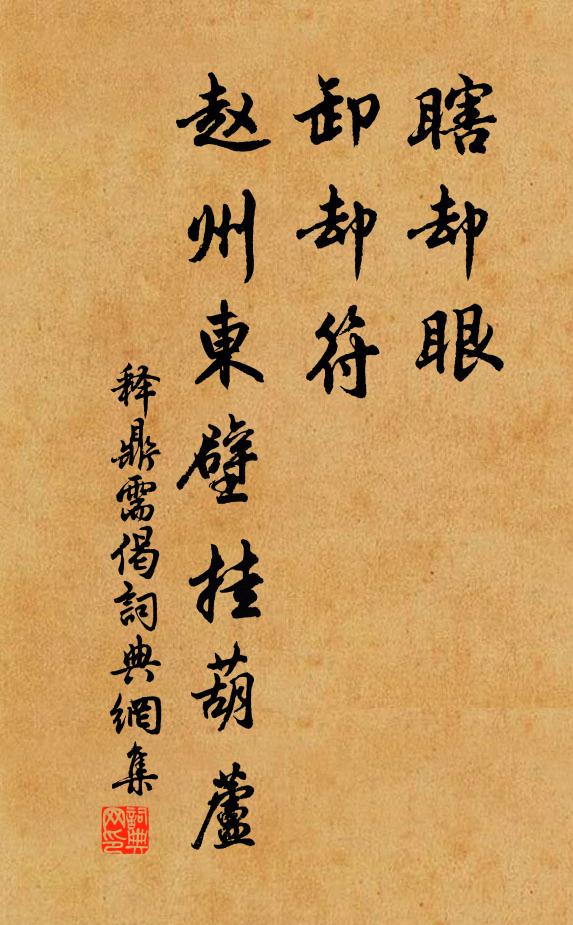 瞎却眼
卸却符
赵州東壁挂葫蘆
释鼎需偈詞典網集
詞典网印